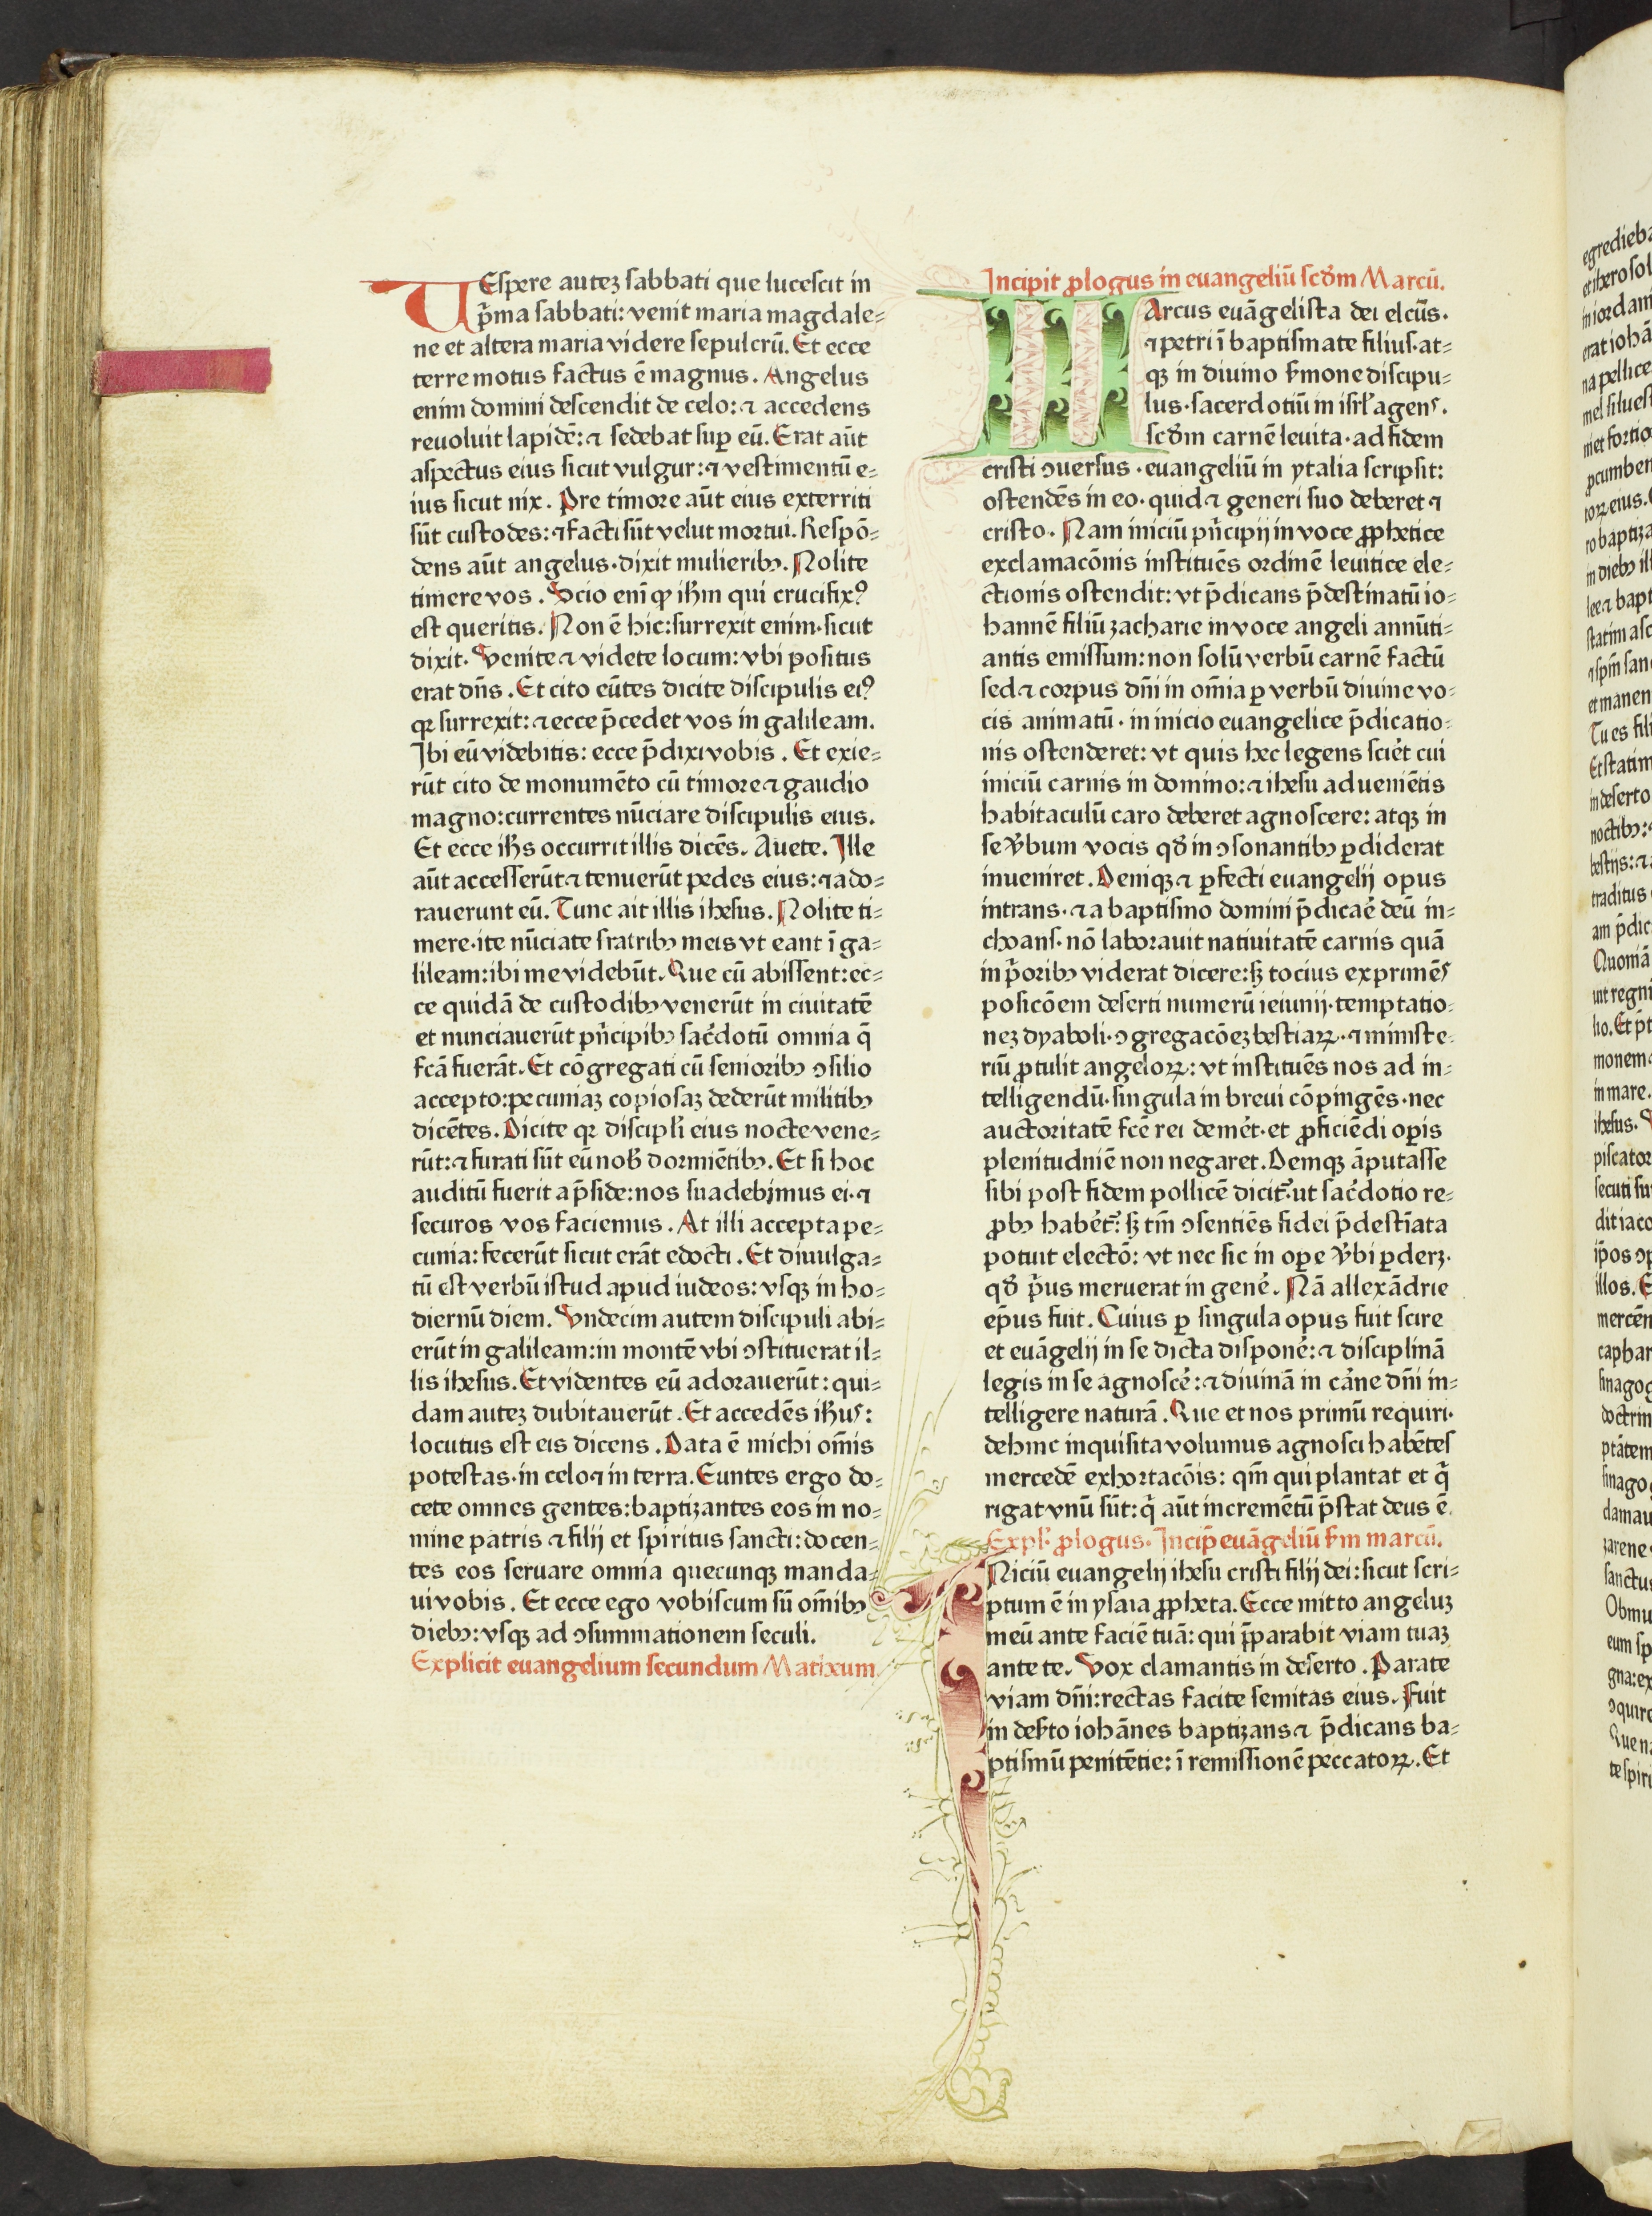 VEspere auteʒ ſabbati que luceſcit in
p̄ma ſabbati: venit maria magdale⸗
ne et altera maria videre ſepulcrū. Et ecce
terre motus factus ē magnus. Angelus
enim domini deſcendit de celo: ⁊ accedens
reuoluit lapidē: ⁊ ſedebat ſuꝑ eū. Erat aūt
aſpectus eius ſicut vulgur: ⁊ veſtimentū e⸗
ius ſicut nix. Pre timore aūt eius exterriti
ſūt cuſtodes: ⁊ facti ſūt velut mortui. Reſpō⸗
dens aūt angelus·dixit mulieribꝫ. Nolite
timere vos. Scio eni̅ ꝙ ih̄m qui crucifixꝰ
eſt queritis. Non ē hic: ſurrexit enim·ſicut
dixit. Venite ⁊ videte locum: vbi poſitus
erat dn̄s. Et cito eūtes dicite diſcipulis eiꝰ
qꝛ ſurrexit: ⁊ ecce p̄cedet vos in galileam.
Ibi eū videbitis: ecce p̄dixi vobis. Et exie⸗
rūt cito de monumēto cū timore ⁊ gaudio
magno: currentes nūciare diſcipulis eius.
Et ecce ih̄s occurrit illis dicēs. Auete. Ille
aūt acceſſerūt ⁊ tenuerūt pedes eius: ⁊ ado⸗
rauerunt eū. Tunc ait illis iheſus. Nolite ti⸗
mere·ite nūciate fratribꝫ meis vt eant ī ga⸗
lileam: ibi me videbūt. Que cū abiſſent: ec⸗
ce quidā de cuſtodibꝫ venerūt in ciuitatē
et nunciauerūt pn̄cipibꝫ ſac̄dotū omnia q̄
fcā fuerāt. Et cōgregati cū ſenioribꝫ ↄſilio
accepto: pecuniaʒ copioſaʒ dederūt militibꝫ
dicētes. Dicite qꝛ diſcipl̄i eius nocte vene⸗
rūt: ⁊ furati ſūt eū nob̄ dormiētibꝫ. Et ſi hoc
auditū fuerit a p̄ſide: nos ſuadebimus ei·⁊
ſecuros vos faciemus. At illi accepta pe⸗
cunia: fecerūt ſicut erāt edocti. Et diuulga⸗
tū eſt verbū iſtud apud iudeos: vſqꝫ in ho⸗
diernū diem. Vndecim autem diſcipuli abi⸗
erūt in galileam: in montē vbi ↄſtituerat il⸗
lis iheſus. Et videntes eū adorauerūt: qui⸗
dam auteʒ dubitauerūt. Et accedēs ih̄us:
locutus eſt eis dicens. Data ē michi om̄is
poteſtas·in celo ⁊ in terra. Euntes ergo do⸗
cete omnes gentes: baptizantes eos in no⸗
mine patris ⁊ filij et ſpiritus ſancti: docen⸗
tes eos ſeruare omnia quecunqꝫ manda⸗
ui vobis. Et ecce ego vobiſcum ſū om̄ibꝫ
diebꝫ: vſqꝫ ad ↄſummationem ſeculi.
Explicit euangelium ſecundum Matheum.
Incipit ꝓlogus in euangeliū ſcd̄m Marcū.
MArcus euāgeliſta dei elcūs·
⁊ petri ī baptiſmate filius·at⸗
qꝫ in diuino ẜmone diſcipu⸗
lus·ſacerdotiū in iſrl̄ agens·
ſcd̄m carnē leuita·ad fidem
criſti ↄuerſus·euangeliū in ytalia ſcripſit:
oſtendēs in eo·quid ⁊ generi ſuo deberet ⁊
criſto. Nam iniciū pn̄cipij in voce ꝓphetice
exclamacōnis inſtituēs ordinē leuitice ele⸗
ctionis oſtendit: vt p̄dicans p̄deſtinatū io⸗
hannē filiū zacharie in voce angeli annūti⸗
antis emiſſum: non ſolū verbū carnē factū
ſed ⁊ corpus dn̄i in om̄ia ꝑ verbū diuine vo⸗
cis animatū·in inicio euangelice p̄dicatio⸗
nis oſtenderet: vt quis hec legens ſciet̄ cui
iniciū carnis in domino: ⁊ iheſu adueniētis
habitaculū caro deberet agnoſcere: atqꝫ in
ſe v̄bum vocis qd̄ in ↄſonantibꝫ ꝑdiderat
inueniret. Deniqꝫ ⁊ ꝑfecti euangelij opus
intrans·⁊ a baptiſmo domini p̄dicaē deū in⸗
choans·nō laborauit natiuitatē carnis quā
in p̄oribꝫ viderat dicere: ſꝫ tocius exprimēs
poſicōem deſerti numerū ieiunij·temptatio⸗
neʒ dyaboli·ↄgregacōeʒ beſtiaꝝ·⁊ miniſte⸗
riū ꝓtulit angeloꝝ: vt inſtituēs nos ad in⸗
telligendū·ſingula in breui cōpingēs·nec
auctoritatē fcē rei demēt·et ꝓficiēdi oꝑis
plenitudniē non negaret. Deniqꝫ āputaſſe
ſibi poſt fidem pollicē dicit᷑·ut ſac̄dotio re⸗
ꝓbꝫ habēt᷑: ſꝫ tm̄ ↄſentiēs fidei p̄deſtīata
potuit electō: vt nec ſic in oꝑe v̄bi ꝑderʒ·
qd̄ p̄us meruerat in genē. Nā allexādrie
ep̄us fuit. Cuius ꝑ ſingula opus fuit ſcire
et euāgelij in ſe dicta diſponē: ⁊ diſciplinā
legis in ſe agnoſcē: ⁊ diuinā in cāne dn̄i in⸗
telligere naturā. Que et nos primū requiri·
dehinc inquiſita volumus agnoſci habētes
mercedē exhortacōis: qm̄ qui plantat et q̄
rigat vnū ſūt: q̄ aūt incremētū p̄ſtat deus ē.
Expl̄· ꝓlogus. Incip̄ euāgeliū ẜm marcū.
INiciū euangelij iheſu criſti filij dei: ſicut ſcri⸗
ptum ē in yſaia ꝓpheta. Ecce mitto angeluʒ
meū ante faciē tuā: qui p̄parabit viam tuaʒ
ante te. Vox clamantis in deſerto. Parate
viam dn̄i: rectas facite ſemitas eius. Fuit
in deẜto iohānes baptizans ⁊ p̄dicans ba⸗
ptiſmū penitētie: ī remiſſionē peccatoꝝ. Et